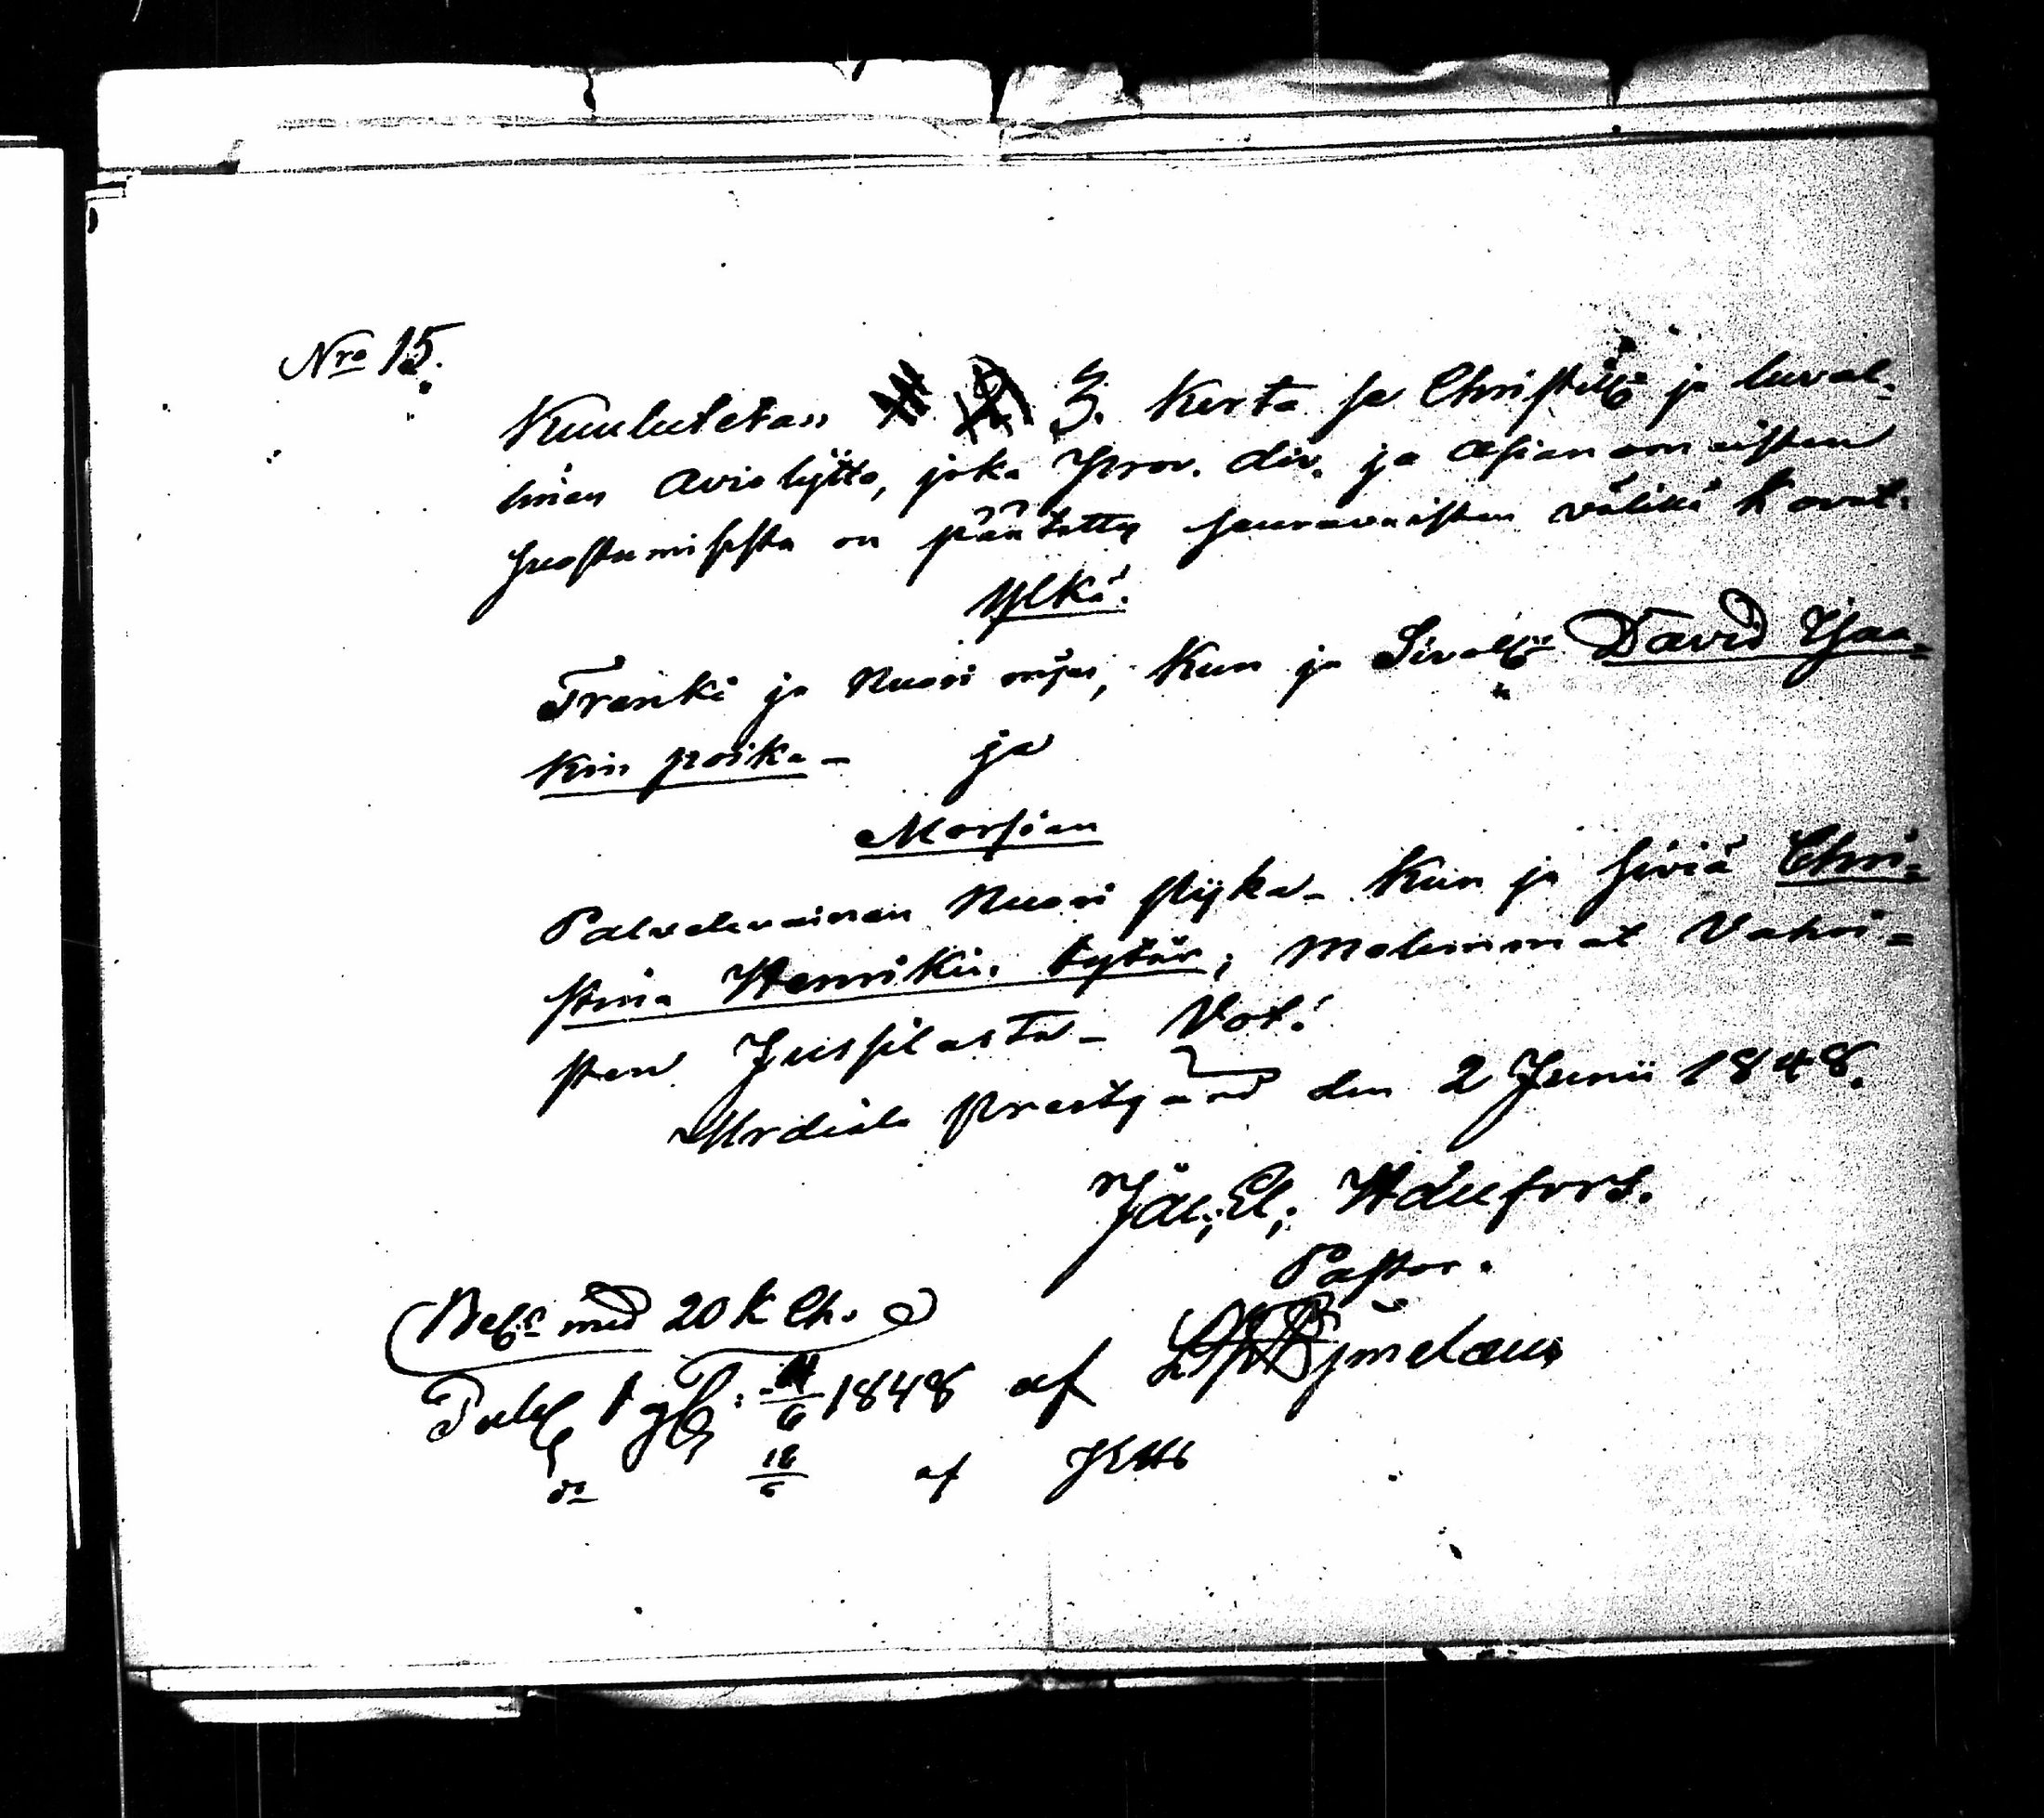 Nro 15.
Kuulutetan 3. Kerta se Christill: ja luval-
linen Avioliitto, joka Prov. div. ja asianomaisten
suostumisesta on päätetty seuravaisten välillä Kovat.
Ylkä.
Trenki ja Nuori mies, Kun ja Sivall: David Jaa-
kin poika - ja
Morsian
Palvelevainen Nuori pijka - Kun ja siviä Chri-
stina Henrikin tytär; molemmat Vahvi-
sten Jussilasta - Vot.
Urdiala prestgård den 2 Junii 1848.
Jac; El; Hdufors.
Pastor.
Bet: med 20 K Ch.
Publ 1 g: /6 1848 af Björnelaus
do 18/6 af JEH